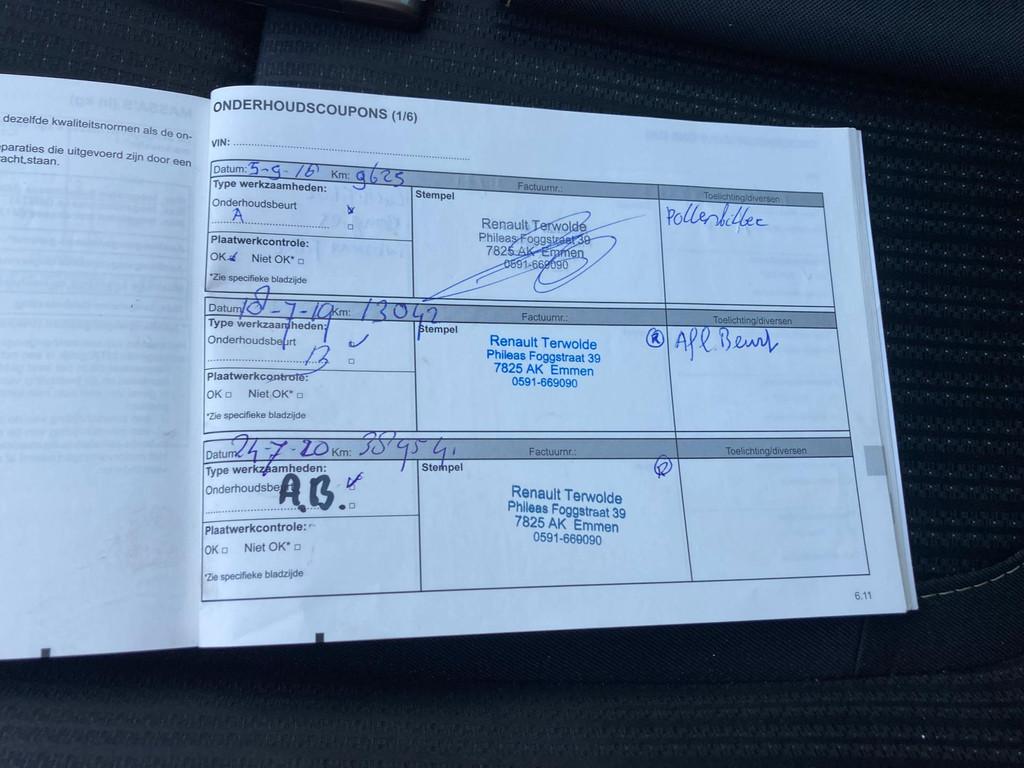 dezelfde kwaliteitsnormen als de on-
paraties die uitgevoerd zijn door een
racht staan.
ONDERHOUDSCOUPONS (1/6)
VIN:
Datum: 5-9-16 Km: 9625 Factuurnr.: Toelichting/diversen
Type werkzaamheden: Stempel
Onderhoudsbeurt
A
Plaatwerkcontrole:
OK Niet OK*
*Zie specifieke bladzijde
Renault Terwolde
Phileas Foggstraat 39
7825 AK Emmen
0591-669090
Pollenfilter
Datum: 18-7-19 Km: 13042 Factuurnr.: Toelichting/diversen
Type werkzaamheden: Stempel
Onderhoudsbeurt
B
Plaatwerkcontrole:
OK Niet OK*
*Zie specifieke bladzijde
Renault Terwolde
Phileas Foggstraat 39
7825 AK Emmen
0591-669090
R Afl. Beurt
Datum: 24-7-20 Km: Factuurnr.: Toelichting/diversen
Type werkzaamheden: Stempel
Onderhoudsbeurt
A.B.
Plaatwerkcontrole:
OK Niet OK*
*Zie specifieke bladzijde
R
Renault Terwolde
Phileas Foggstraat 39
7825 AK Emmen
0591-669090
6.11